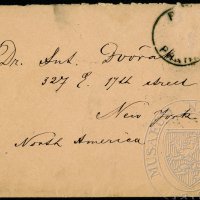 Dr. Ant. Dvořá
327 E. 17th street
New York
North America